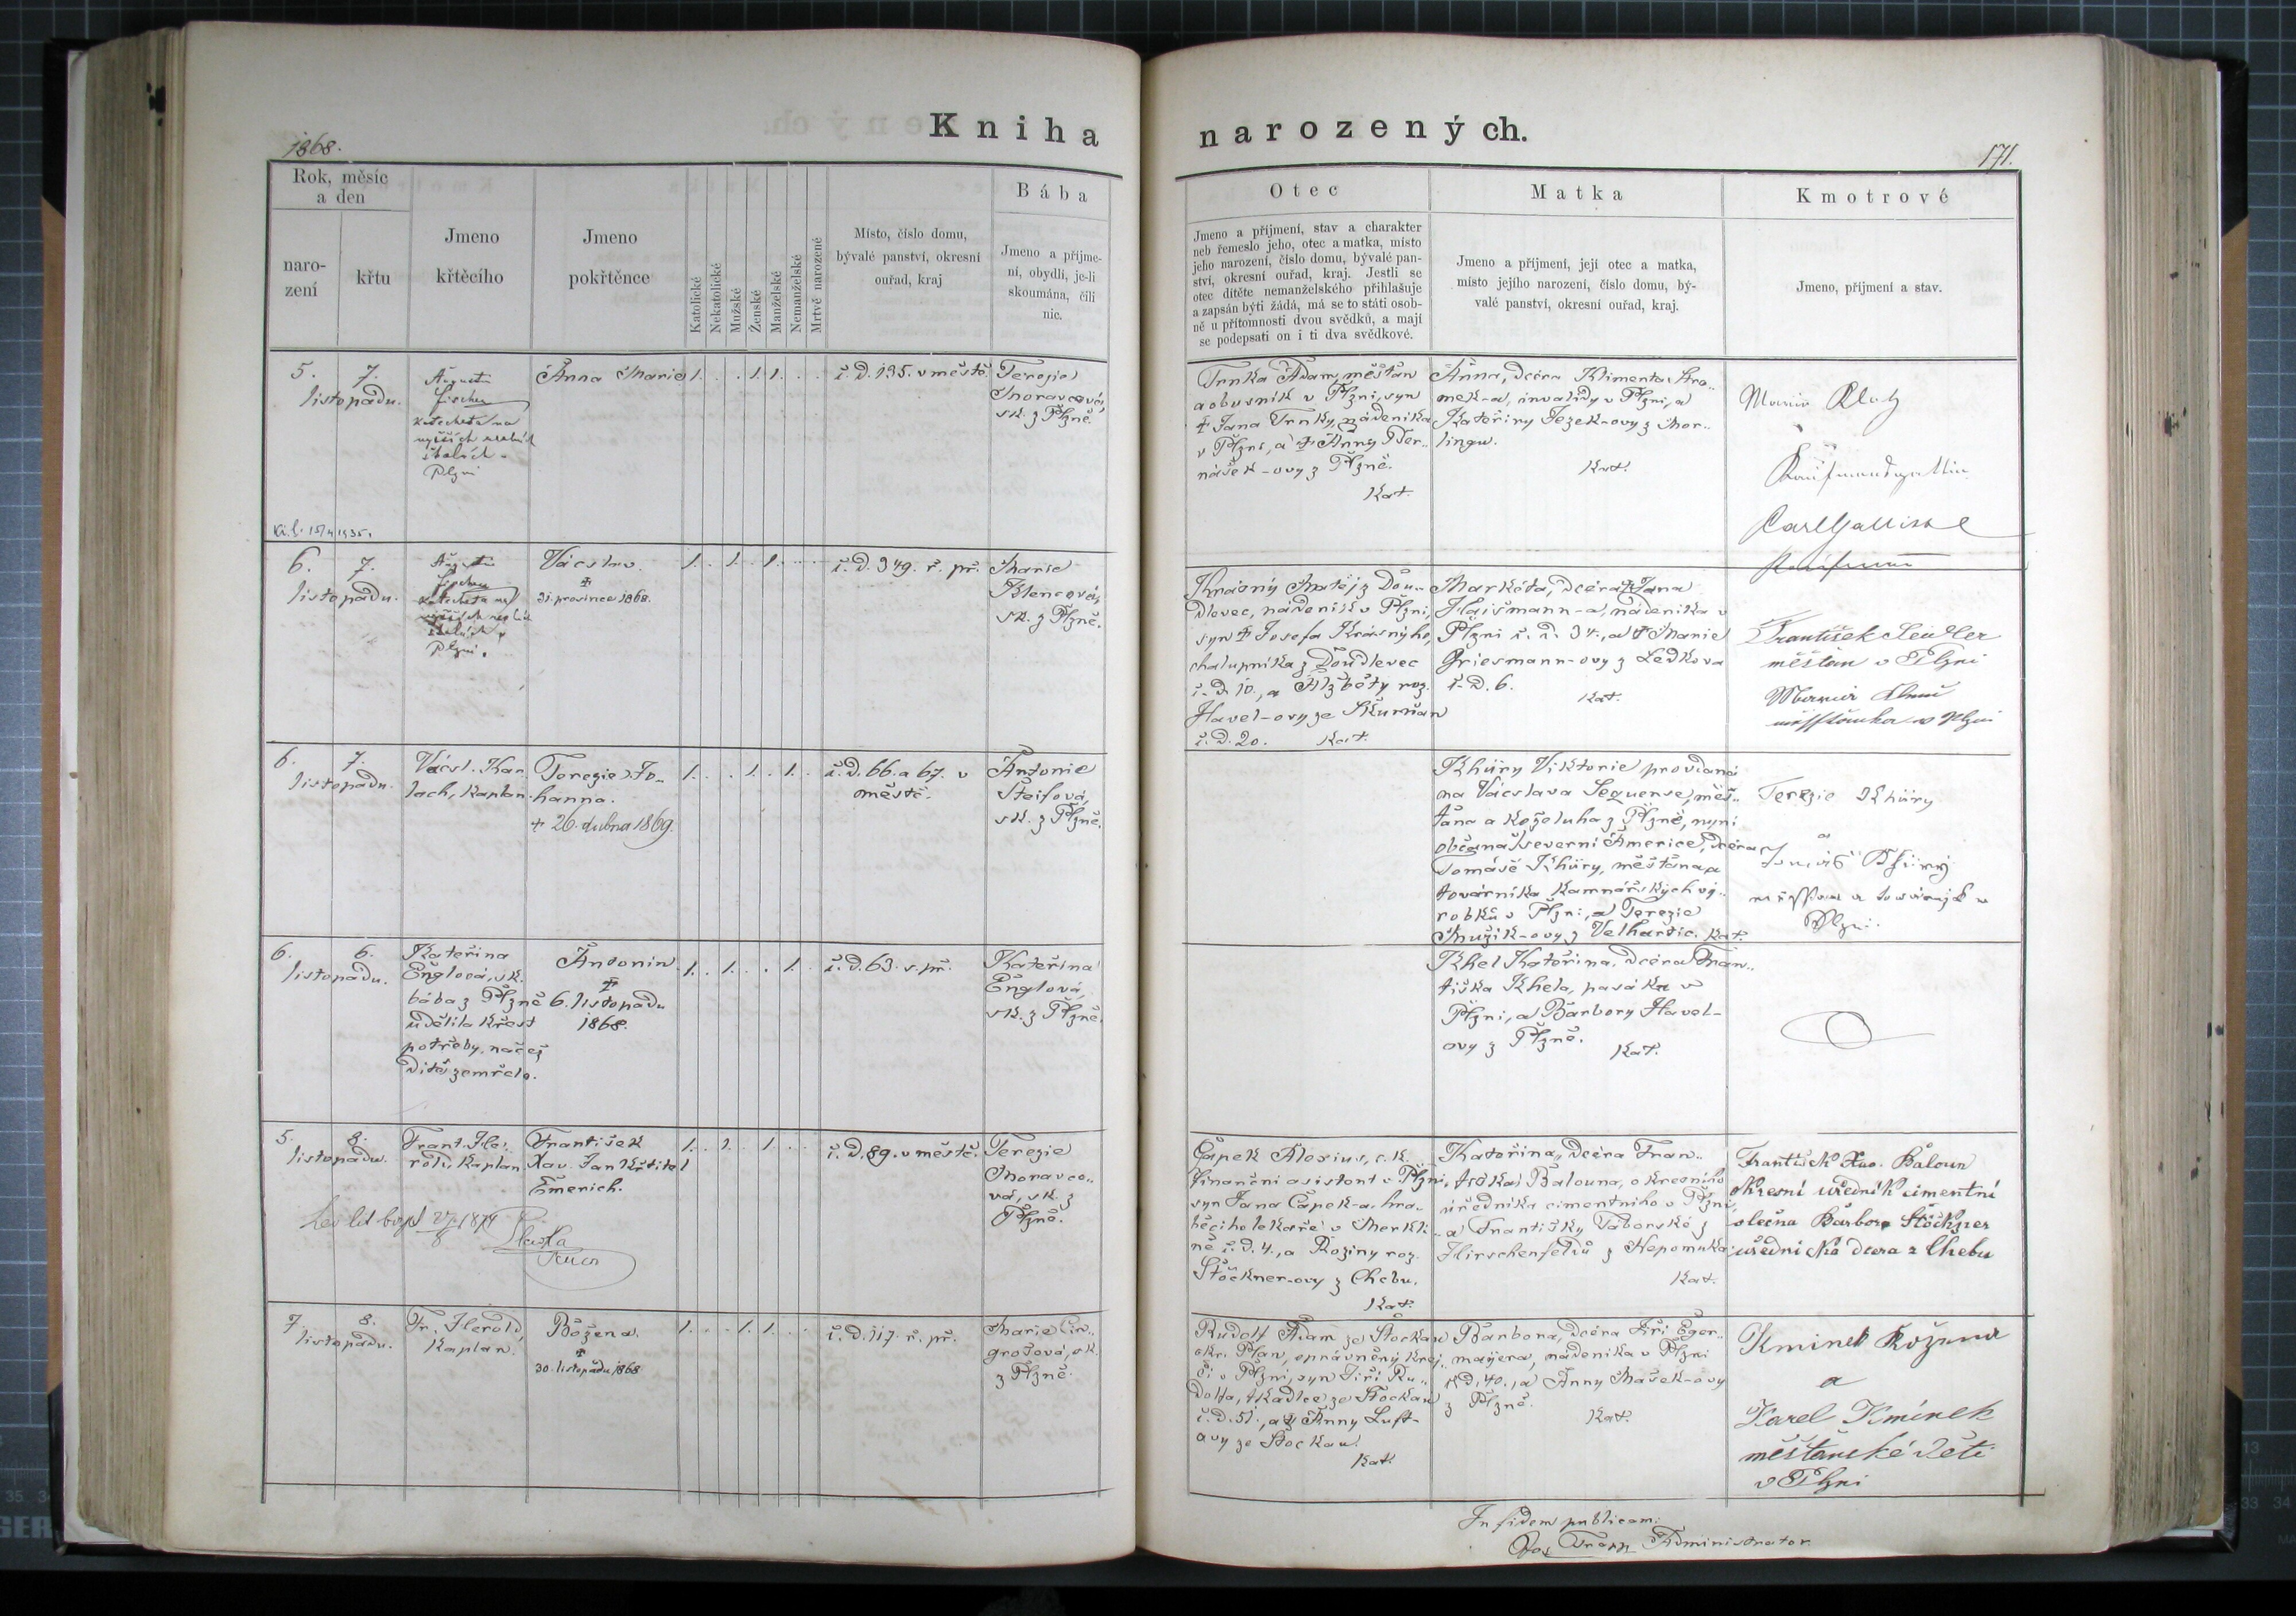 Kniha narozených.
1868.
171.
Rok, měsíc
a den
naro-
zení
křtu
Jmeno
křtěcího
Jmeno
pokřtěnce
Katolické
Nekatolické
Mužské
Ženské
Manželské
Nemanželské
Mrtvě narozené
Místo, číslo domu,
bývalé panství, okresní
ouřad, kraj
Bába
Jmeno a příjme-
ní, obydlí, je-li
skoumána, čili
nic.
Otec
Jmeno a příjmení, stav a charakter
neb řemeslo jeho, otec a matka, místo
jeho narození, číslo domu, bývalé pan-
ství, okresní ouřad, kraj. Jestli se
otec dítěte nemanželského přihlašuje
a zapsán býti žádá, má se to státi osob-
ně u přítomnosti dvou svědků, a mají
se podepsati on i ti dva svědkové.
Matka
Jmeno a příjmení, její otec a matka,
místo jejího narození, číslo domu, bý-
valé panství, okresní ouřad, kraj.
Kmotrové
Jmeno, příjmení a stav.
5. 7.
listopadu.
Augustin
Fischer
katecheta na
vyšších
školách
Plzni
Anna Marie
1. . . 1. 1. . .
č. d. 135. v městě.
Terezie
Moravcová,
sk. z Plzně.
Trnka Adam, měšťan
a obuvník v Plzni, syn
† Jana Trnky, nádeníka
v Plzni, a † Anny Ber-
nášek-ovy z Plzně.
Kat.
Anna, dcera Klimenta
mek-a, invalidy v Plzni, a
Kateřiny Jezek-ovy z Mor-
lingu.
Kat.
Maria
Kaufmannsgattin
Carl
Kaufmann
6. 7.
listopadu.
Augustin
Fischer
katecheta na
školách
Plzni.
Václav.
†
31. prosince 1868.
1. . 1. . 1. . .
č. d. 349. ř. př.
Marie
Klencová,
sk. z Plzně.
Krásný Matěj z Dou-
dlevec, nádeník v Plzni,
syn † Josefa Krásnýho,
chalupníka z Doudlevec
č. d. 10., a Alžběty roz.
Havel-ovy ze Skurňan
č. d. 20. Kat.
Markéta, dcera † Jana
Hajšmann-a, nádeníka v
Plzni č. d. 34., a † Marie
Griesmann-ovy z Ledkova
č. d. 6.
Kat.
František Seidler
měšťan v Plzni
6. 7.
listopadu.
Vácsl. Kar
lach, kaplan.
Terezie Jo-
hanna.
+ 26. dubna 1869.
1. . . 1. . 1. .
č. d. 66. a 67. v
městě.
Antonie
Šteifová,
sk. z Plzně.
Khüry Viktorie provdaná
na Václava Sequense, měš-
ťana a koželuha z Plzně, nyní
občana v severní Americe, dcera
Tomáše Khüry, měšťana a
továrníka kamnářských vý-
robků v Plzni, a Terezie
Mužik-ovy z Velhartic. Kat.
Terezie Khüry
a
Tomáš Khüry
Plzni.
6. 6.
listopadu.
Kateřina
Englová, sk.
bába z Plzně
udělila křest
potřeby, načež
dítě zemřelo.
Antonín.
†
6. listopadu
1868.
1. . 1. . . 1. .
č. d. 63. s. př.
Kateřina
Englová,
sk. z Plzně.
Khel Kateřina, dcera Fran-
tiška Khela, pasáka v
Plzni, a Barbory Havel-
ovy z Plzně.
Kat.
5. 8.
listopadu.
Frant. He-
rold, kaplan
František
Xav. Jan Křtitel
Emerich.
1. . 1. . 1. . .
č. d. 89. v městě.
Terezie
Moravco-
vá, sk. z
Plzně.
Čapek Alexius, c. k.
finanční asistent v Plzni,
syn Jana Čapek-a, hra-
běcího lékaře v Merklí-
ně č. d. 4., a Roziny roz.
Stöckner-ovy z Chebu.
Kat.
Kateřina, dcera Fran-
tiška Balouna, okresního
úředníka cimentního v Plzni,
a Františky Táborské z
Hirschenfeldů z Nepomuka.
Kat.
František Xav. Baloun
okresní úředník cimentní
slečna Barbora Stöckner
úřednická dcera z Chebu
7. 8.
listopadu.
Fr. Herold,
kaplan.
Božena.
†
30. listopadu 1868
1. . . 1. 1. . .
č. d. 117. ř. př.
Marie Cin-
grošová, sk.
z Plzně.
Rudolf Adam ze Stockau
okr. Plan, oprávněný krej-
čí v Plzni, syn Jiří Ru-
dolfa, tkadlce ze Stockau
č. d. 51., a Anny Luft-
ovy ze Stockau.
Kat.
Barbora, dcera Jiří Eger-
mayera, nádeníka v Plzni
č. d. 40., a Anny Mašek-ovy
z Plzně.
Kat.
Kminek Božena
a
Karel Kmínek
měšťanské děti
v Plzni
In fidem publicam:
Administrator